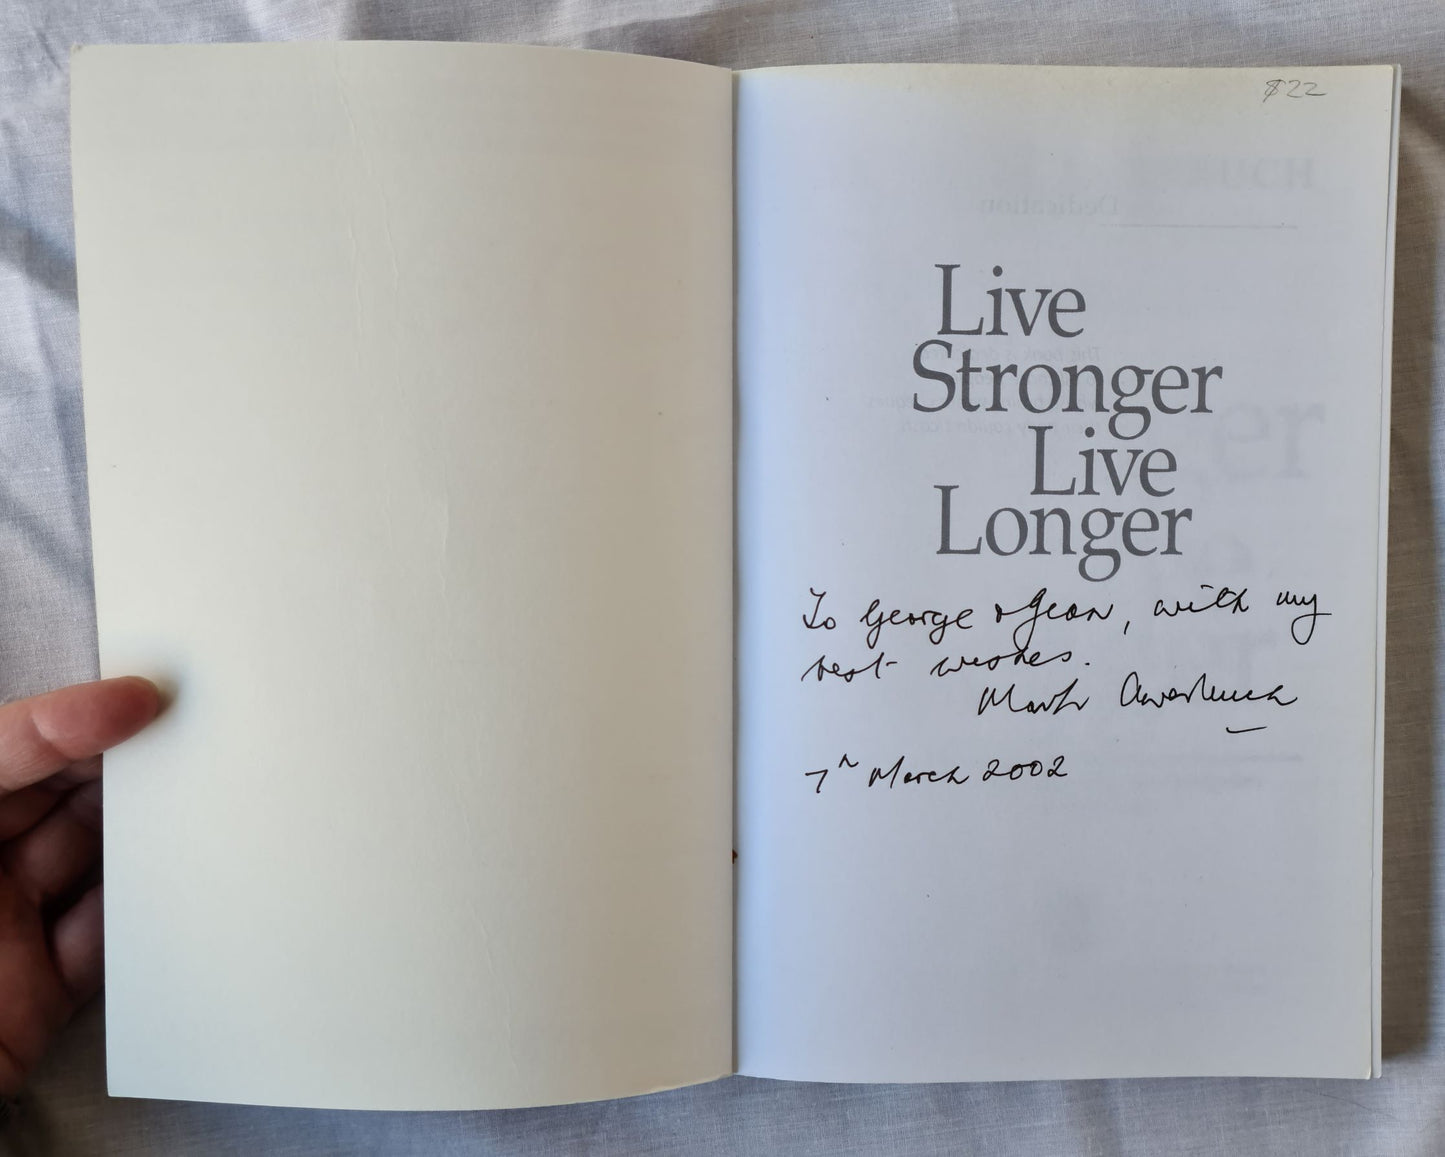 $22
Live
Stronger
Live
Longer
To George & Jean, with my
best wishes.
Mark
7th March 2002
Dedication